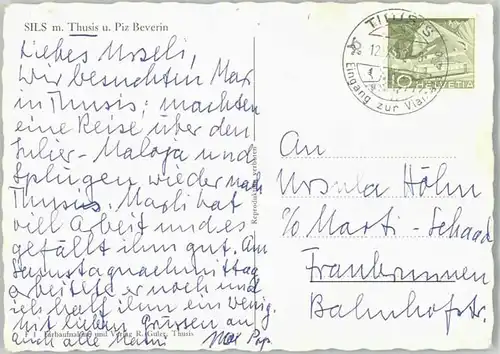 SILS m. Thusis u. Piz Beverin
Liebes Urseli,
Wir besuchten Max
in Thusis; machten
eine Reise über den
Julier- Maloja und
Splügen wieder nach
Thusis. Marli hat
viel Arbeit und es
gefällt ihm gut. Am
Samstagnachmittag
arbeitete er noch und
ich half ihm ein wenig.
Mit lieben Grüssen an
auch alle
Farbaufnahme und Verlag R. Guler, Thusis
Reproduktion verboten
THUSIS
Eingang zur
10 HELVETIA
An
Ursula Höhn
c/o Marti-Schaad
Fraubrunnen
Bahnhofstr.